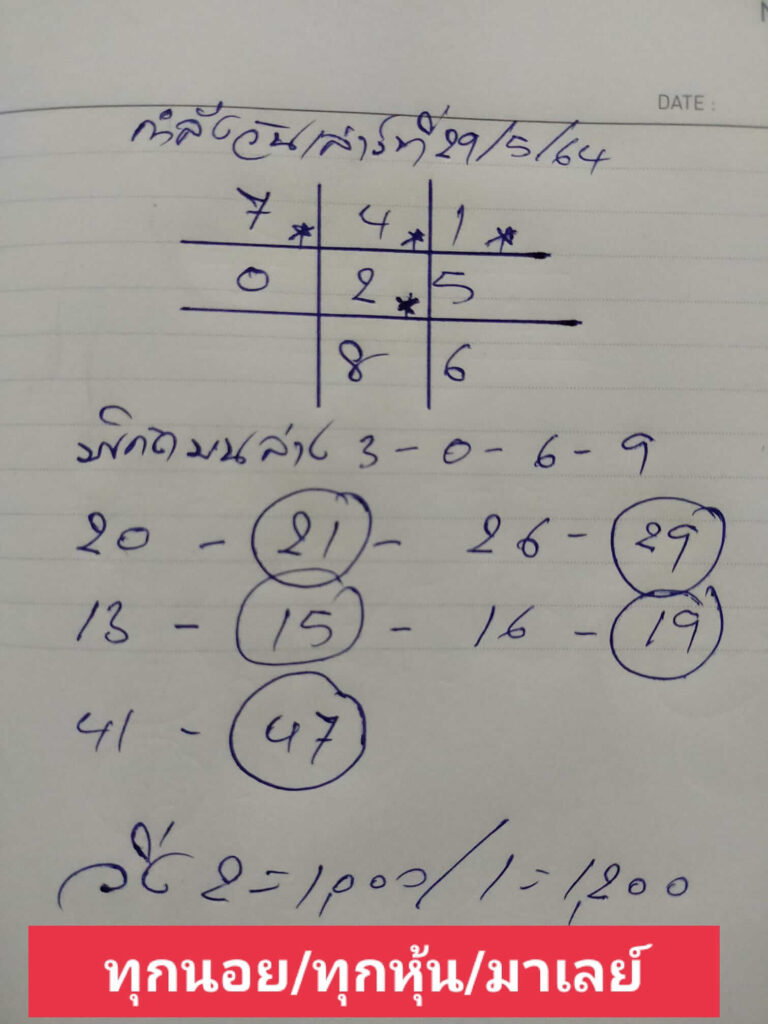 DATE :
กำลังวันเสาร์ที่ 29/5/64
7 * 4 * 1 *
0 2 * 5
8 6
3 - 0 - 6 - 9
20 - 21 - 26 - 29
13 - 15 - 16 - 19
41 - 47
วิ่ง 2 = 1,000 / 1 = 1,200
ทุกนอย/ทุกหุ้น/มาเลย์